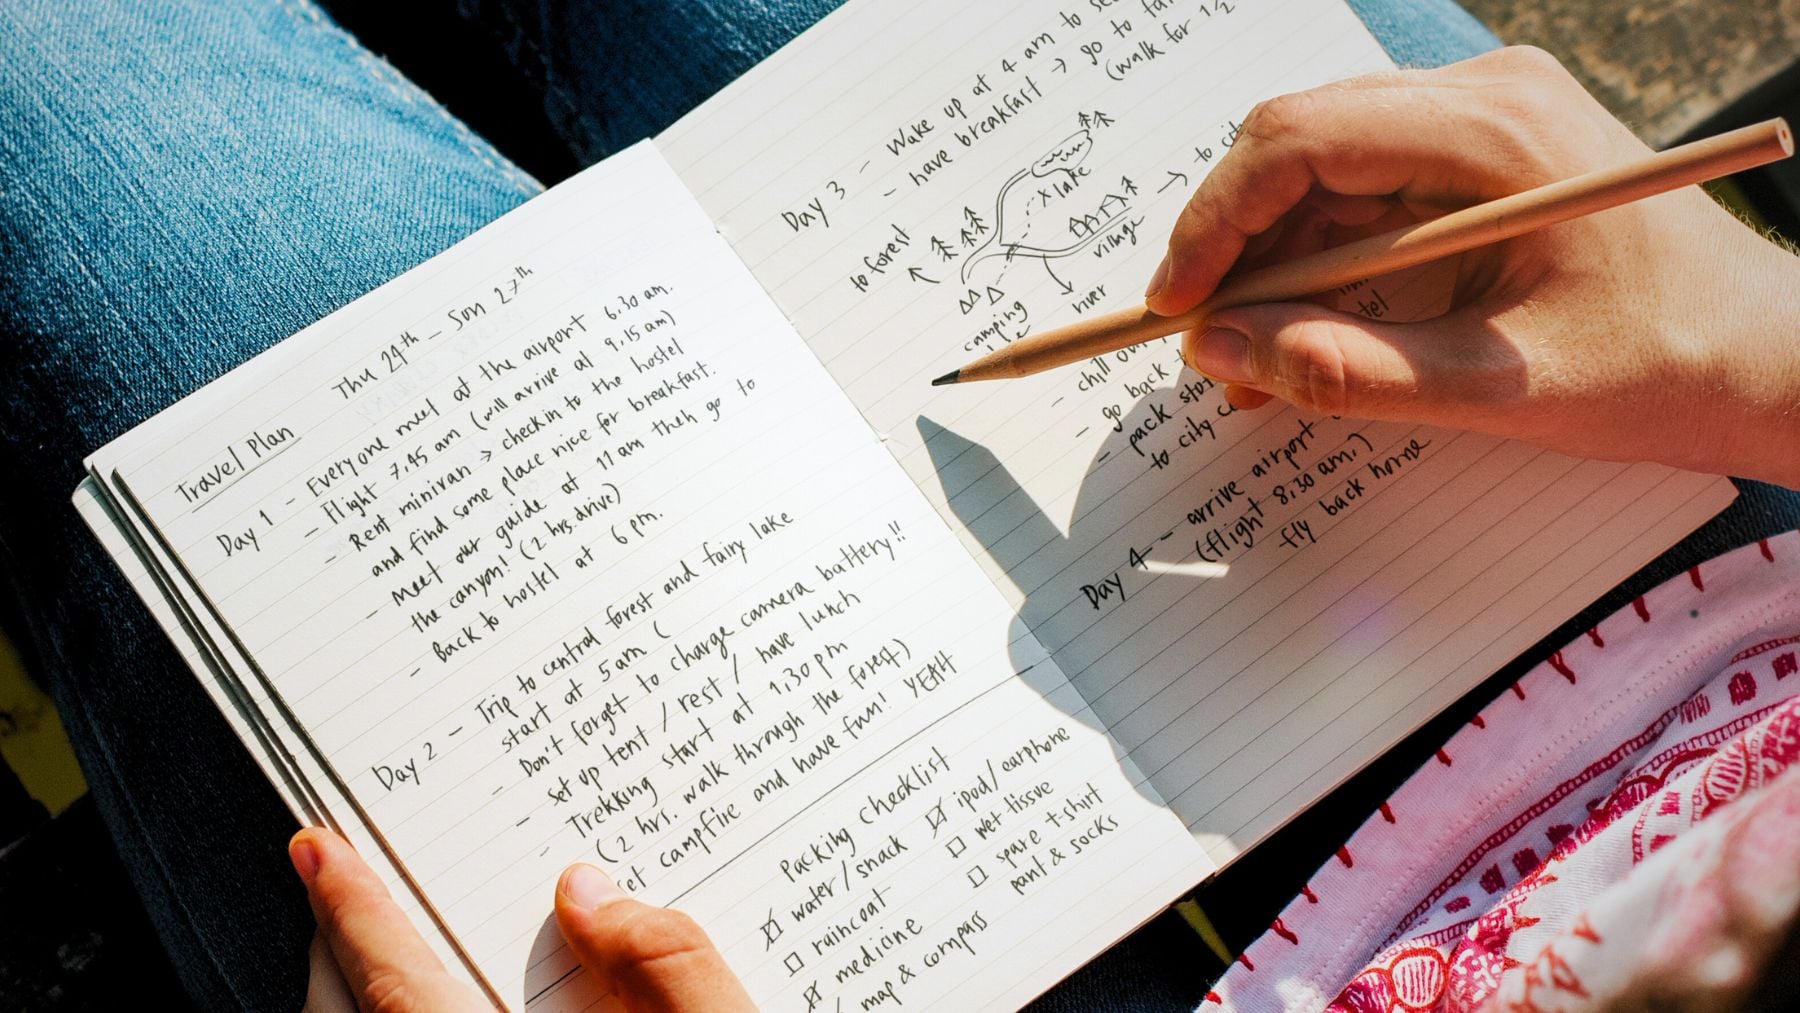 Travel Plan
Thu 24th - Sun 27th
Day 1 - Everyone meet at the airport 6.30 am.
- Flight 7.45 am (will arrive at 9.15 am)
- Rent minivan → check in to the hostel
and find some place nice for breakfast.
- Meet our guide at 11 am then go to
the canyon! (2 hrs. drive)
- Back to hostel at 6 pm.
Day 2 - Trip to central forest and fairy lake
start at 5 am (
Don't forget to charge camera battery!!
- set up tent / rest / have lunch
- Trekking start at 1.30 pm
(2 hrs. walk through the forest)
- campfire and have fun! YEAH
Packing checklist
☒ water / snack
☐ raincoat
☒ medicine
map & compass
☒ ipod / earphone
☐ wet tissue
☐ spare t-shirt
pant & socks
Day 3 - Wake up at 4 am to
- have breakfast → go to
(walk for 1½
to forest
x lake
village
→ to
river
camping
- chill
- go back
- pack
to city
Day 4 - arrive airport
(flight 8.30 am.)
fly back home